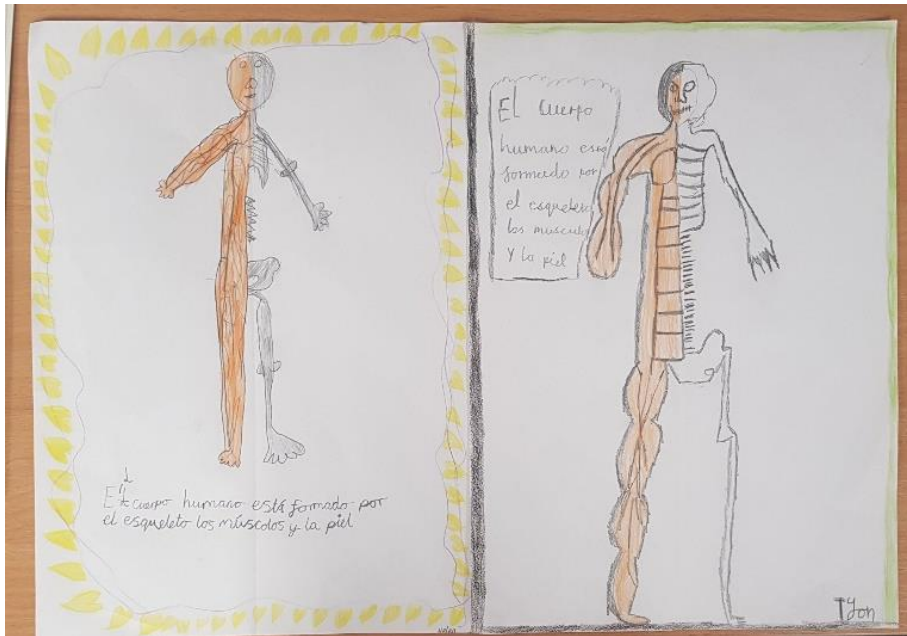 El cuerpo humano está formado por
el esqueleto los múscolos y la piel
El cuerpo
humano está
formado por
el esqueleto
los musculo
y la piel
Yon